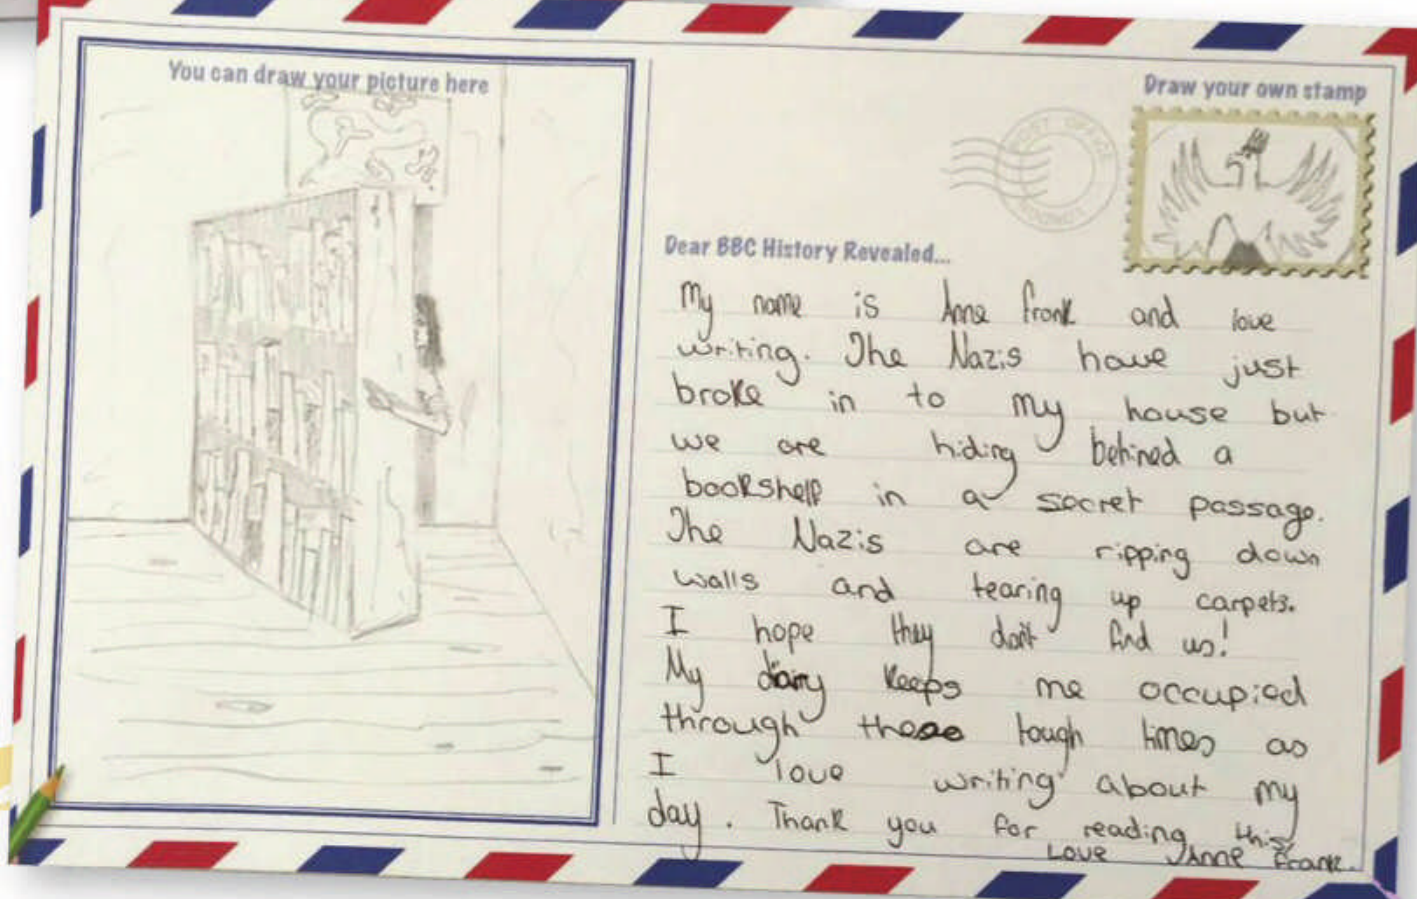 You can draw your picture here
Draw your own stamp
POST OFFICE
Dear BBC History Revealed...
My name is Anne frank and love
writing. The Nazis have just
broke in to my house but
we are hiding behined a
bookshelf in a secret passage.
The Nazis are ripping down
walls and tearing up carpets.
I hope they don't find us!
My dairy keeps me occupied
through these tough times as
I love writing about my
day. Thank you for reading this
Love Anne Frank.